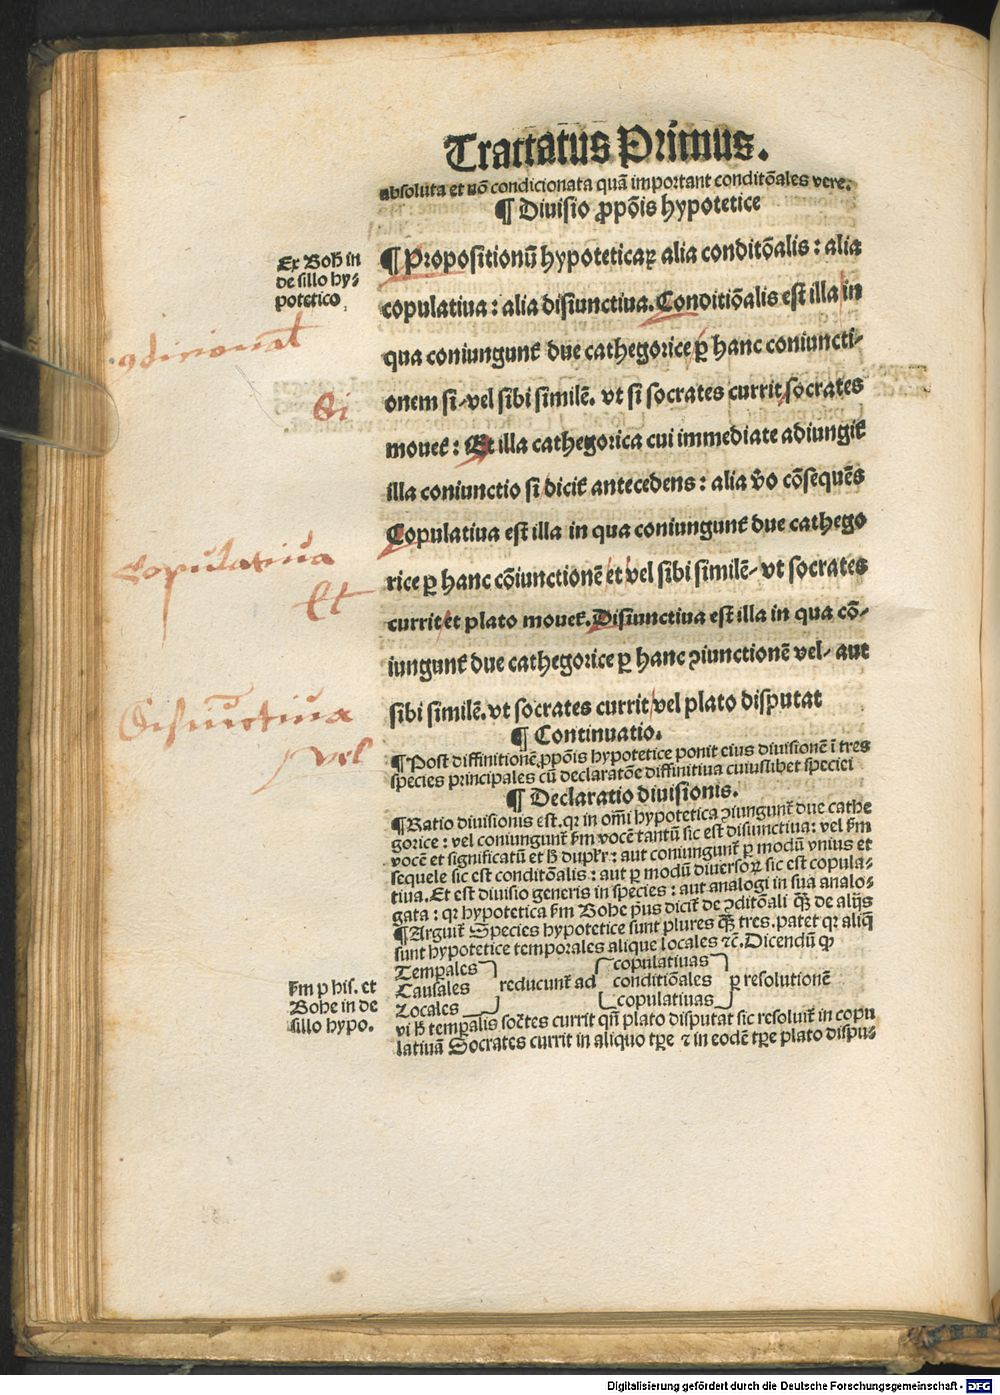 Tractatus Primus.
absoluta et nō condicionata quā important conditōales vere.
¶ Diuisio ꝓpōis hypotetice
Ex Boh̄ in
de sillo hy-
potetico.
¶ Propositionū hypoteticaꝝ alia conditōalis : alia
copulatiua : alia disiunctiua. Conditiōalis est illa in
qua coniungunt̄ due cathegorice ꝑ hanc coniuncti-
onem si-vel sibi similē. vt si socrates currit socrates
mouet̄ : Et illa cathegorica cui immediate adiungit̄
illa coniunctio si dicit̄ antecedens : alia v̄o cōsequēs
Copulatiua est illa in qua coniungunt̄ due cathego
rice ꝑ hanc cōiunctionē et vel sibi similē- vt socrates
currit et plato mouet̄. Disiunctiua est illa in qua cō-
iungunt̄ due cathegorice ꝑ hanc ꝯiunctionē vel- aut
sibi similē. vt socrates currit vel plato disputat
ꝯdicional
Si
Copulatiua
Et
Disiūctiua
vel
¶ Continuatio.
¶ Post diffinitionē ꝓpōis hypotetice ponit eius diuisionē ī tres
species principales cū declaratōe diffinitiua cuiuslibet speciei
¶ Declaratio diuisionis.
¶ Ratio diuisionis est. qꝛ in om̄i hypotetica ꝯiungunt̄ due cathe
gorice : vel coniungunt̄ fm̄ vocē tantū sic est disiunctiua: vel fm̄
vocē et significatū et h̄ duplr̄ : aut coniungunt̄ ꝑ modū vnius et
sequele sic est conditōalis : aut ꝑ modū diuersoꝝ sic est copula-
tiua. Et est diuisio generis in species : aut analogi in sua analo-
gata : qꝛ hypotetica fm̄ Bohe pꝰus dicit̄ de ꝯditōali qꝫ̄ de alijs
¶ Arguit̄ Species hypotetice sunt plures qꝫ̄ tres. patet qꝛ aliq̄
sunt hypotetice temporales alique locales ⁊c̄. Dicendū ꝙ
fm̄ p his. et
Bohe in de
sillo hypo.
Temꝑales
Causales
Locales
reducunt̄ ad
copulatiuas
conditiōales
copulatiuas
ꝑ resolutionē
vt h̄ temꝑalis socr̄tes currit qn̄ plato disputat sic resoluit̄ in copu
latiuā Socrates currit in aliquo tꝑe ⁊ in eodē tꝑe plato dispu-
Digitalisierung gefördert durch die Deutsche Forschungsgemeinschaft - DFG